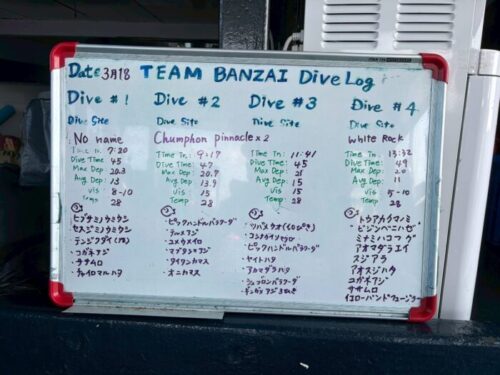 Date 3月18 TEAM BANZAI Dive Log
Dive #1
Dive Site
No name
Time In: 7:20
Dive Time: 45
Max Dep: 20.3
Avg Dep: 13
Vis: 8-10
Temp: 28
・ヒプナミノウミウシ
・テンジクダイ
・コガネアジ
・ササムロ
・チャイロマルハタ
Dive #2
Dive Site
Chumphon pinnacle x 2
Time In: 9:17
Dive Time: 47
Max Dep: 20.7
Avg Dep: 13.9
Vis: 15
Temp: 28
・ピックハンドルバラクーダ
・テルメアジ
・ユメウメイロ
・マブタシマアジ
・タイワンカマス
・オニカマス
Dive #3
Dive Site
Time In: 11:41
Dive Time: 45
Max Dep: 21
Avg Dep: 15
Vis: 15
Temp: 28
・ピックハンドルバラクーダ
・ヤイトハタ
・アカマダラハタ
・シェブロンバラクーダ
Dive #4
Dive Site
White Rock
Time In: 13:32
Dive Time: 49
Max Dep:
Avg Dep: 11
Vis: 5-10
Temp: 28
・トウアカクマノミ
・ミナミハコフグ
・アオマダラエイ
・スジアラ
・アオスジハタ
・コガネアジ
・ササムロ
・イエローバンドフュージラー